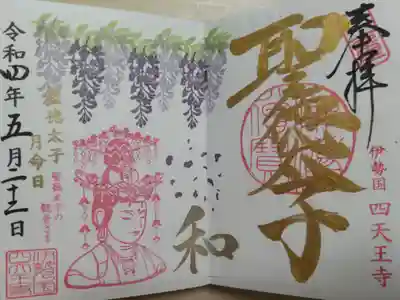 奉拝
聖徳太子
伊勢国 四天王寺
和
聖徳太子
月命日
令和四年五月二十二日